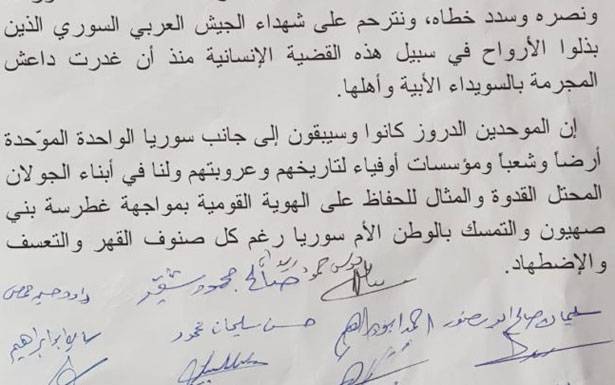 ونصره وسدد خطاه، ونترحم على شهداء الجيش العربي السوري الذين
بذلوا الأرواح في سبيل هذه القضية الإنسانية منذ أن غدرت داعش
المجرمة بالسويداء الأبية وأهلها.
إن الموحدين الدروز كانوا وسيبقون إلى جانب سوريا الواحدة الموّحدة
أرضاً وشعباً ومؤسسات أوفياء لتاريخهم وعروبتهم ولنا في أبناء الجولان
المحتل القدوة والمثال للحفاظ على الهوية القومية بمواجهة غطرسة بني
صهيون والتمسك بالوطن الأم سوريا رغم كل صنوف القهر والتعسف
والإضطهاد.
صالح محمود شقير
سليمان صالح
حسن سليمان محمود
ابو ابراهيم